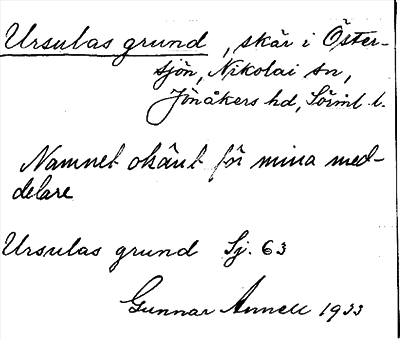 Ursulas grund, skär i Öster-
sjön, Nikolai sn,
Jönåkers hd, Sörml. l.
Namnet okänt för mina med-
delare
Ursulas grund Sj. 63
Gunnar Annell 1933